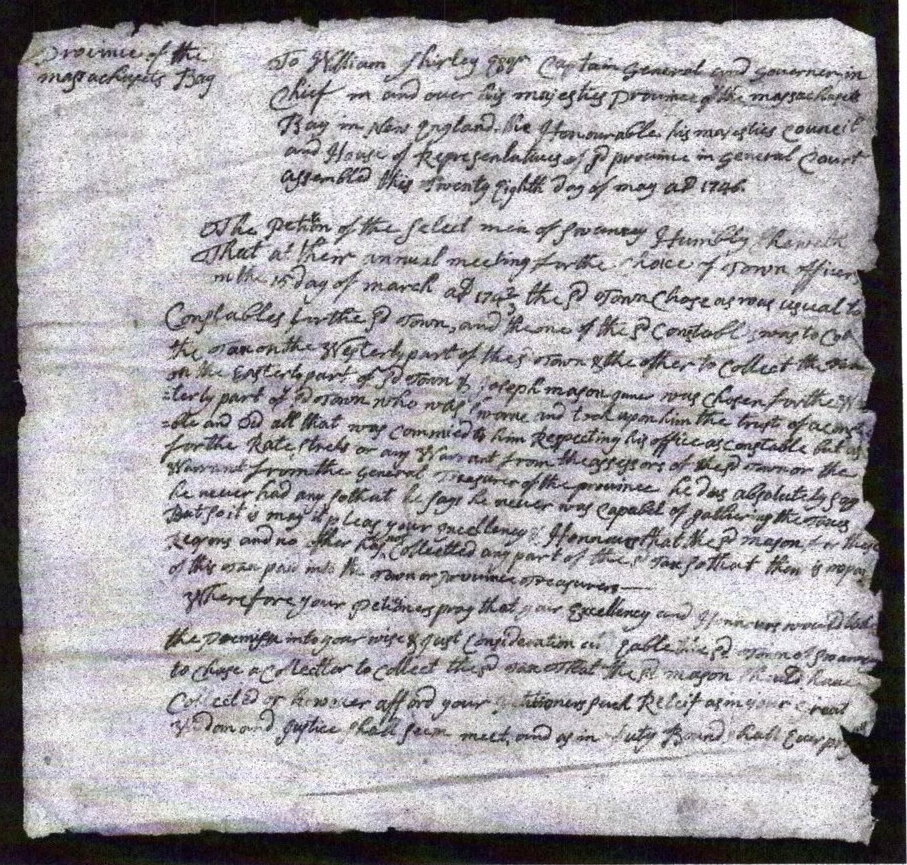 Province of the
massachusets Bay
To William Shirley Esqr Captain General and Governer in
Chief in and over his majesties Province of the massachusets
Bay in New England. the Honourable his majesties Council
and House of Representatives of sd province in General Court
assembled this Twenty Eighth day of may AD 1746.
The Petition of the Select men of Swanzey Humbly Sheweth
That at their annual meeting for the Choice of Town officers
in the 15 day of march AD 174 the sd Town Chose as was usual to
Constables for the sd Town, and the one of the sd Constables was to Col
the Tax on the Westerly part of the sd Town & the other to Collect the
on the Easterly part of sd Town & Joseph mason juner was Chosen for the
terly part of sd Town who was Sworne and took upon him the trust of a const
ble and did all that was Commited to him Respecting his office as constable but as
for the Rate or any Warrant from the assessors of the sd Town or the
Warrant from the General Treasurer of the province he dos absolutely say
he never had any so that he says he never was Capabel of gathering the Taxes
But so it is may it pleas your Excellency & Honnours that the sd mason for these
Reasons and no other has not Collected any part of the sd Tax so that then is no part
of this Tax paid into the Town or province Treasurers
Wherefore your Petitioners pray that your Excellency and Honnours would take
the Premises into your wise & Just Consideration and Eable the sd Town of Swanzey
to Chuse a Collector to Collect the sd Tax That the sd mason Should have
Collected or however afford your Petitioners Such Releif as in your Great
Wisdom and Justice Shall Seem meet, and as in Duty Bound shall Ever pray